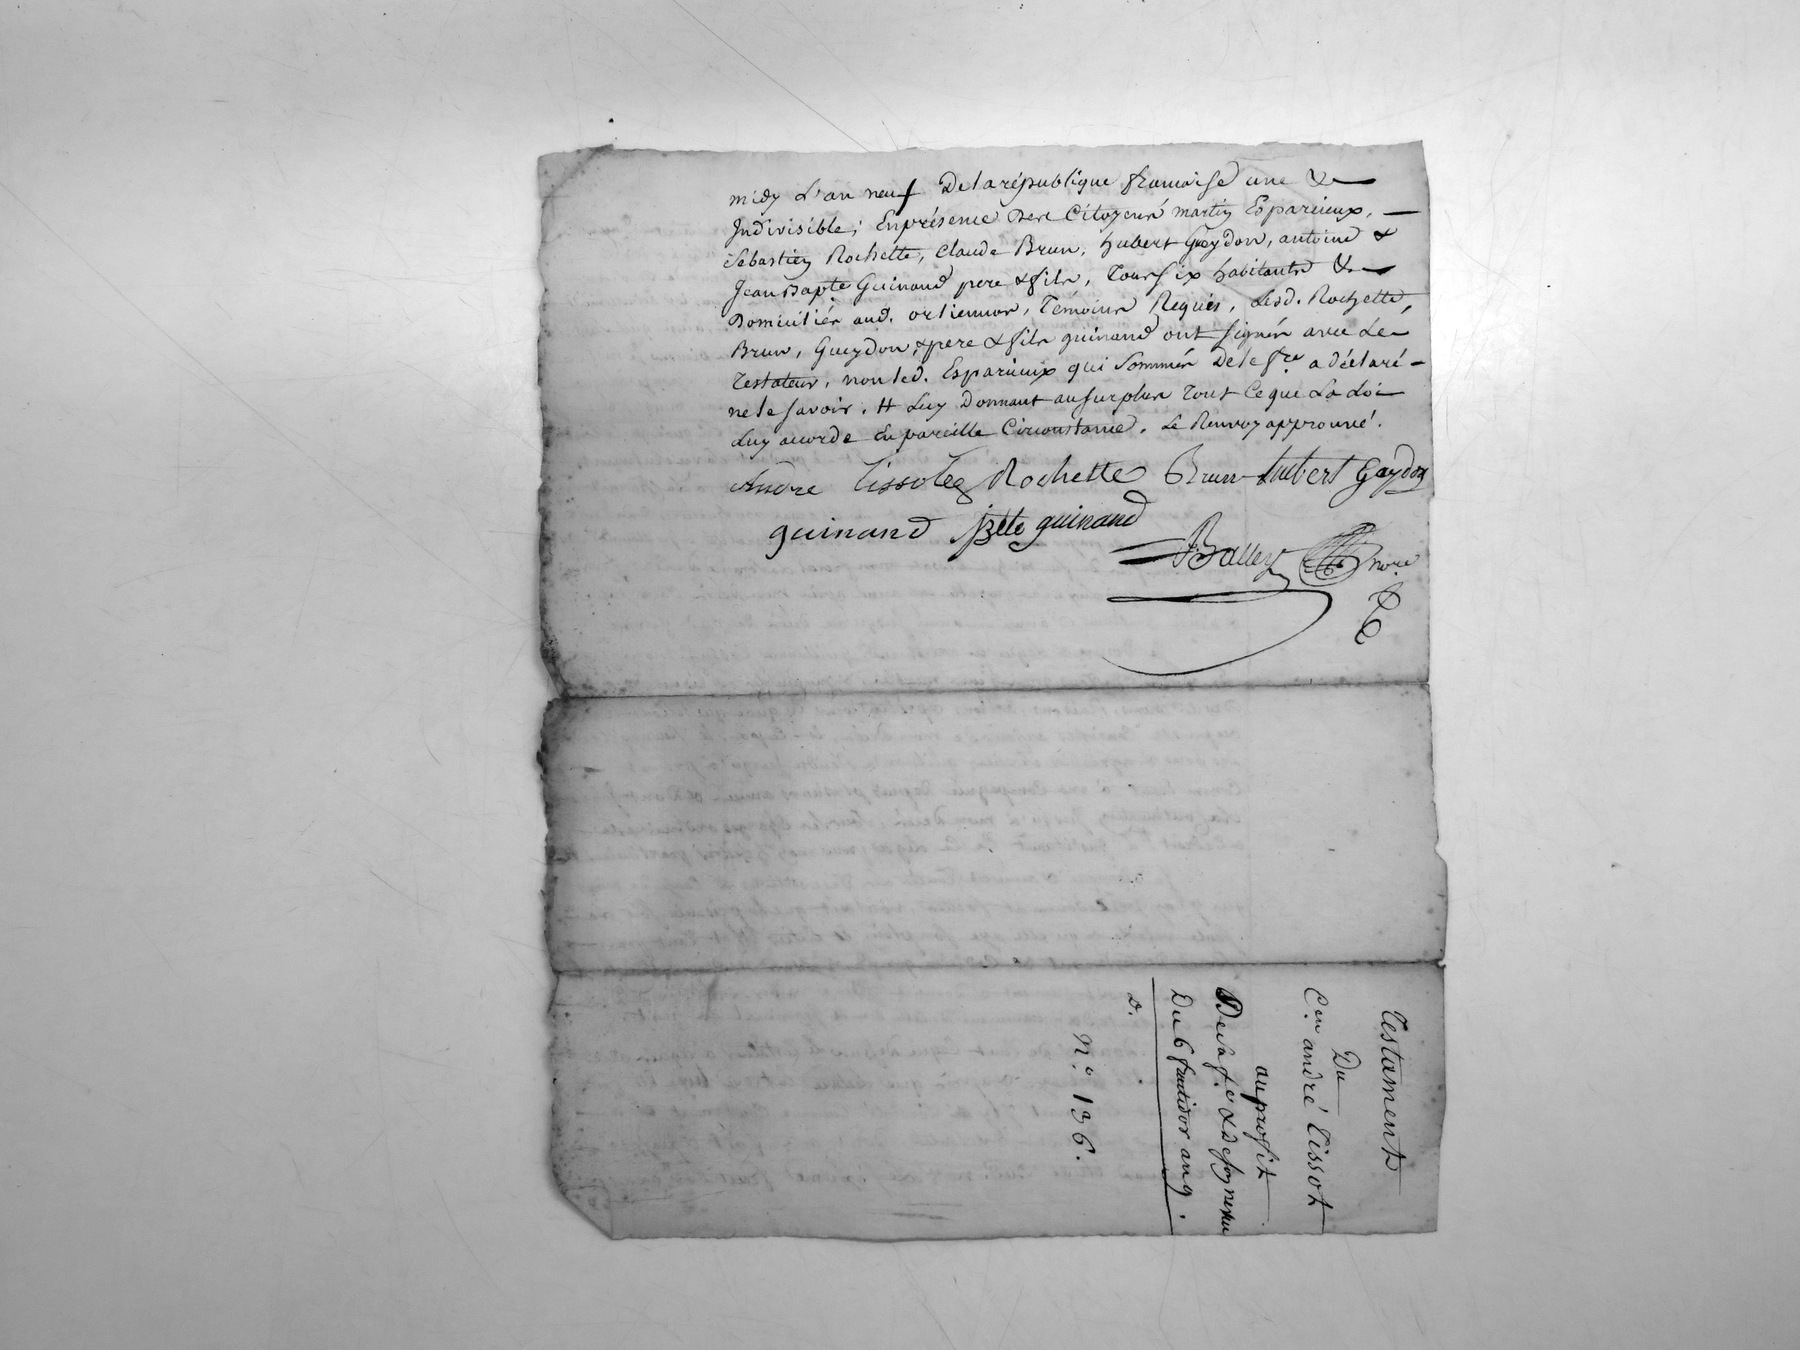 midy L'an neuf De la république francaise une &
Indivisible; En présence Des Citoyens martin Esparcieux,
Sébastien Rochette, Claude Brun, hubert Gaydon, antoine &
Jean Bapte Guinand pere & fils, Tous six habitants &
Domiciliés aud. orlienas, Témoins Requis, Lesd. Rochette,
Brun, Gueydon, & pere & fils guinand ont signés avec Le
Testateur, non led. Esparcieux qui sommés De le fre a déclaré
ne le savoir. # Luy Donnant au surplus Tout Ce que La Loi
Luy accorde En pareille Circonstance. Le Renvoy approuvé.
André Tissot Rochette Brun hubert Gaydon
guinand jBte guinand
Balley nore
Testament
Du
Cen andré Tissot
au profit
De sa fe & de son neveu
Du 6 fructidor an 9.
D.
N.º 136.